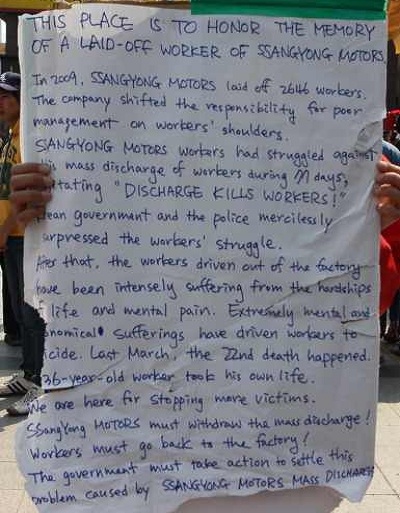 THIS PLACE IS TO HONOR THE MEMORY
OF A LAID-OFF WORKER OF SSANGYONG MOTORS.
In 2009, SSANGYONG MOTORS laid off 2646 workers.
The company shifted the responsibility for poor
management on workers' shoulders.
SANGYONG MOTORS Workers had struggled against
his mass discharge of workers during 77 days,
stating "DISCHARGE KILLS WORKERS!"
rean government and the police mercilessly
urpressed the workers' struggle.
fter that, the workers driven out of the factory
have been intensely suffering from the hardships
life and mental pain. Extremely mental and
onomical Sufferings have driven workers to
icide. Last March, the 22nd death happened.
36-year-old worker took his own life.
We are here for stopping more victims.
SSangYong MOTORS must withdraw the mass discharge!
Workers must go back to the factory!
The government must take action to settle this
problem caused by SSANGYONG MOTORS MASS DISCHARGE